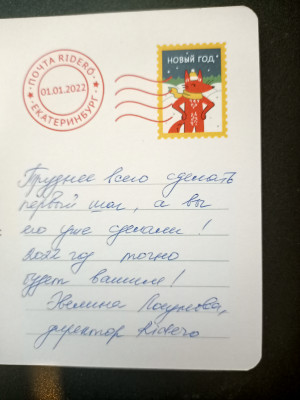 ПОЧТА RIDERÓ
01.01.2022
ЕКАТЕРИНБУРГ
НОВЫЙ ГОД
Труднее всего сделать
первый шаг, а вы
его уже сделали!
2022 год точно
будет вашим!
директор Ridero